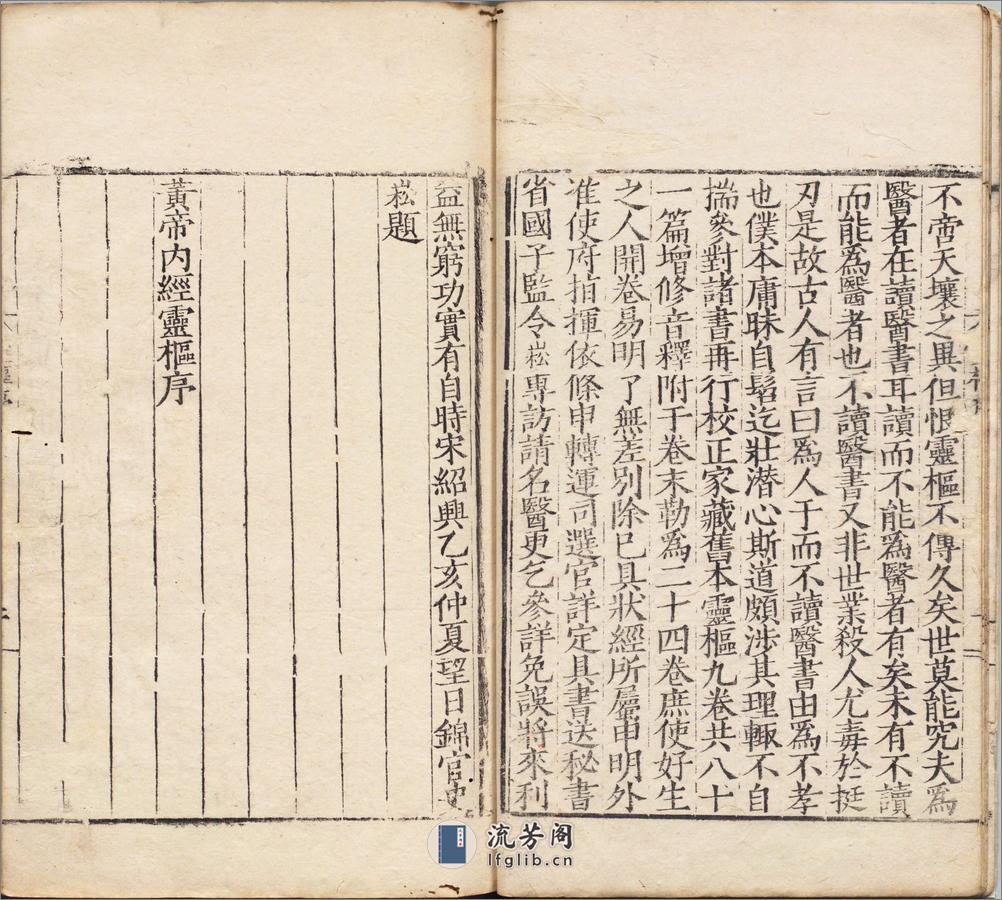 不啻天壤之異但恨靈樞不傳久矣世莫能究夫爲
醫者在讀醫書耳讀而不能爲醫者有矣未有不讀
而能爲醫者也不讀醫書又非世業殺人尤毒於挺
刃是故古人有言曰爲人子而不讀醫書由爲不孝
也僕本庸昧自髫迄壯潛心斯道頗涉其理輙不自
揣參對諸書再行校正家藏舊本靈樞九卷共八十
一篇增修音釋附于卷末勒爲二十四卷庶使好生
之人開卷易明了無差别除已具狀經所屬申明外
准使府指揮依條申轉運司選官詳定具書送秘書
省國子監令崧専訪請名醫更乞參詳免誤將來利
益無窮功實有自時宋紹興乙亥仲夏望日錦官史
崧題
黃帝內經靈樞序
流芳阁
lfglib.cn